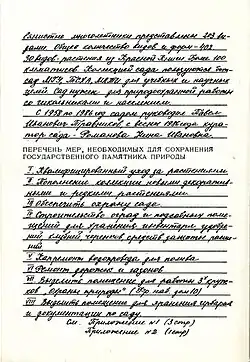 многолетники представлены 203 ви-
дами. Общее количество видов и форм - 403
30 видов - растения из Красной книги. Более 100
Коллекцией сада пользуются
для учебных и научных
целей. Сад нужен для природоохранной работы
со школьниками и населением.
С 1958 по 1986 год садом руководил Павел
Иванович Травников, с весны 1986 года кура-
тор сада - Романова Нина Ивановна.
ПЕРЕЧЕНЬ МЕР, НЕОБХОДИМЫХ ДЛЯ СОХРАНЕНИЯ
ГОСУДАРСТВЕННОГО ПАМЯТНИКА ПРИРОДЫ
I Квалифицированный уход за растениями.
II Пополнение коллекции новыми декоративны-
ми и редкими растениями.
III Обеспечить охрану сада.
IV Строительство оград и подсобных поме-
щений для хранения инвентаря, удобре-
ний, клубней,
V Капремонт водопровода для полива.
VI Ремонт дорожек и газонов
VII Выделить помещение для работы
"Охраны природы"
VIII Выделить помещение для хранения
и документации по саду.
См. Приложение №1 (3 стр)
Приложение №2 (1 стр)